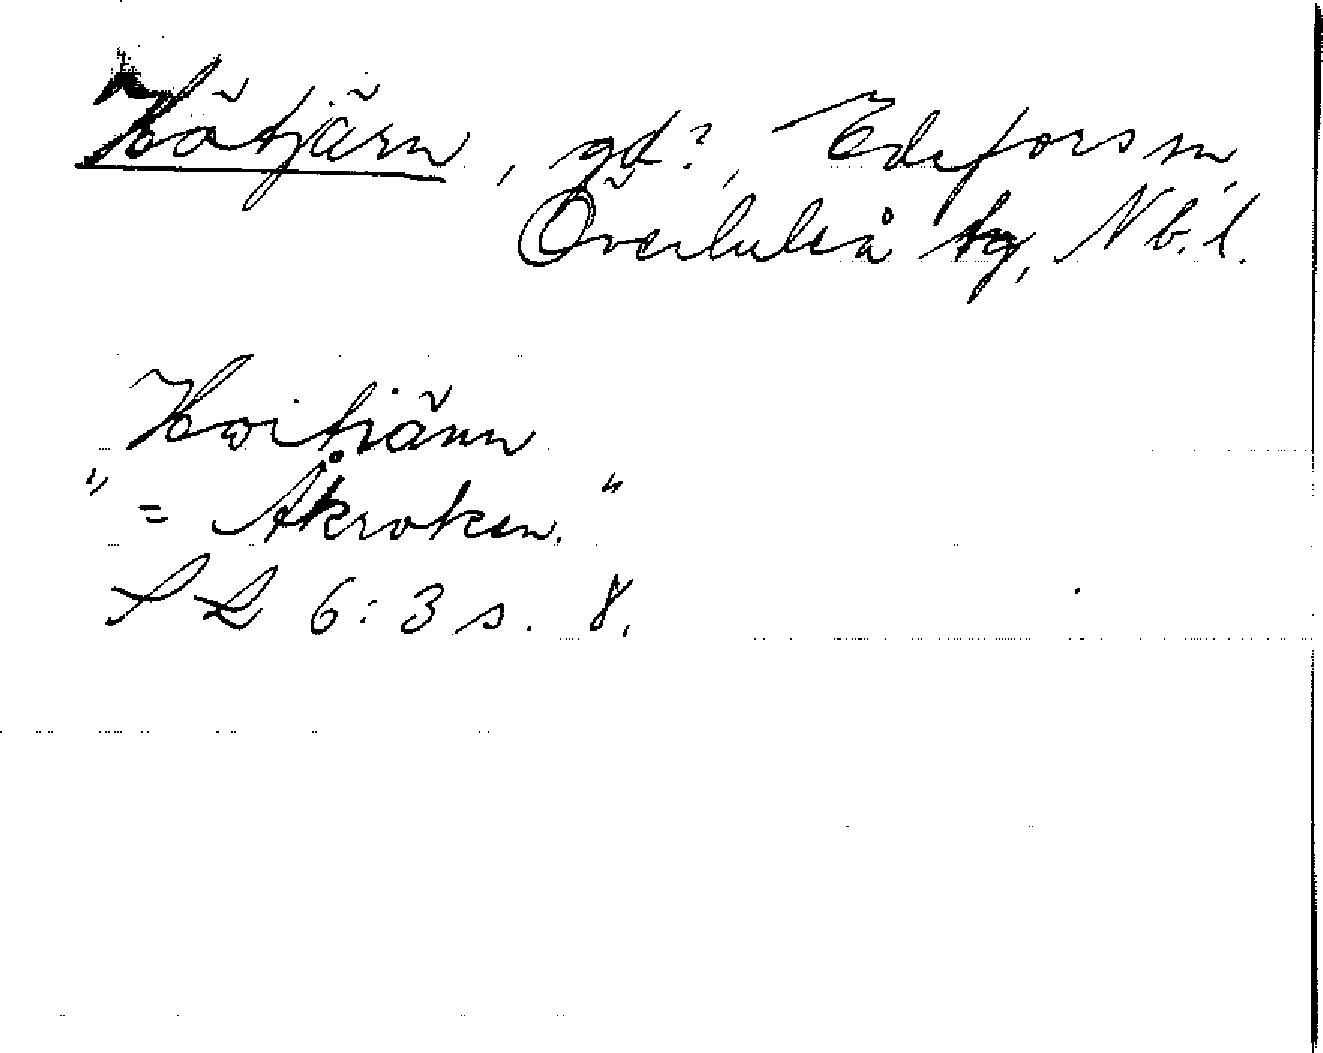 Kötjärn, gd?, Edeforsm,
Överluleå tg, Nb.l.
Kœitjänn
" = Åkroken. "
SL 6:3 s. 8.